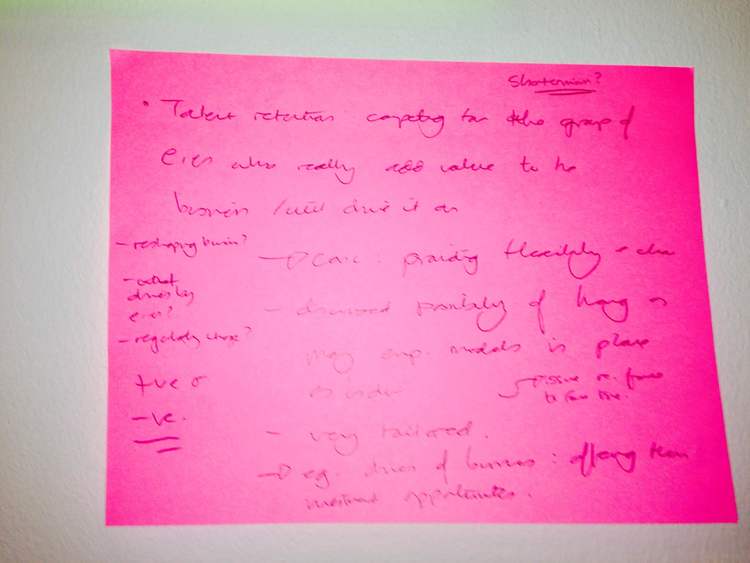 Short-termism?
• Talent retention competing for the group of
e'ees who really add value to the
business / will drive it on
- reshaping business?
- what
drives key
e'ees?
- regulatory change?
+ve or
-ve.
→ core: providing flexibility +
- discussed possibility of having as
many emp. models in place
as
issue re. from
to time.
- very tailored.
→ eg. drivers of business: offering them
investment opportunities.